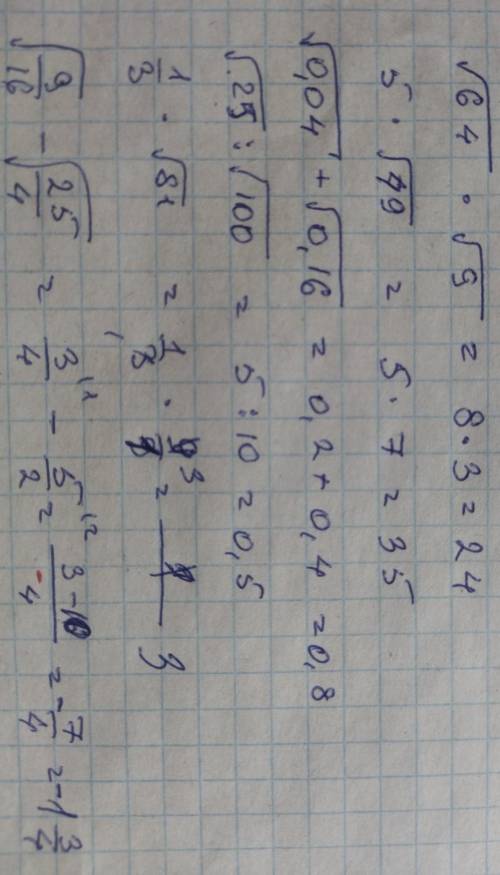 √64 · √9 = 8·3 = 24
5 · √49 = 5·7 = 35
√0,04 + √0,16 = 0,2 + 0,4 = 0,8
√25 : √100 = 5 : 10 = 0,5
1/3 · √81 = 1/3 · 9 3 = 3
√9/16 - √25/4 = 3/4 - 5/2 = 3-10/4 = -7/4 = -1 3/4